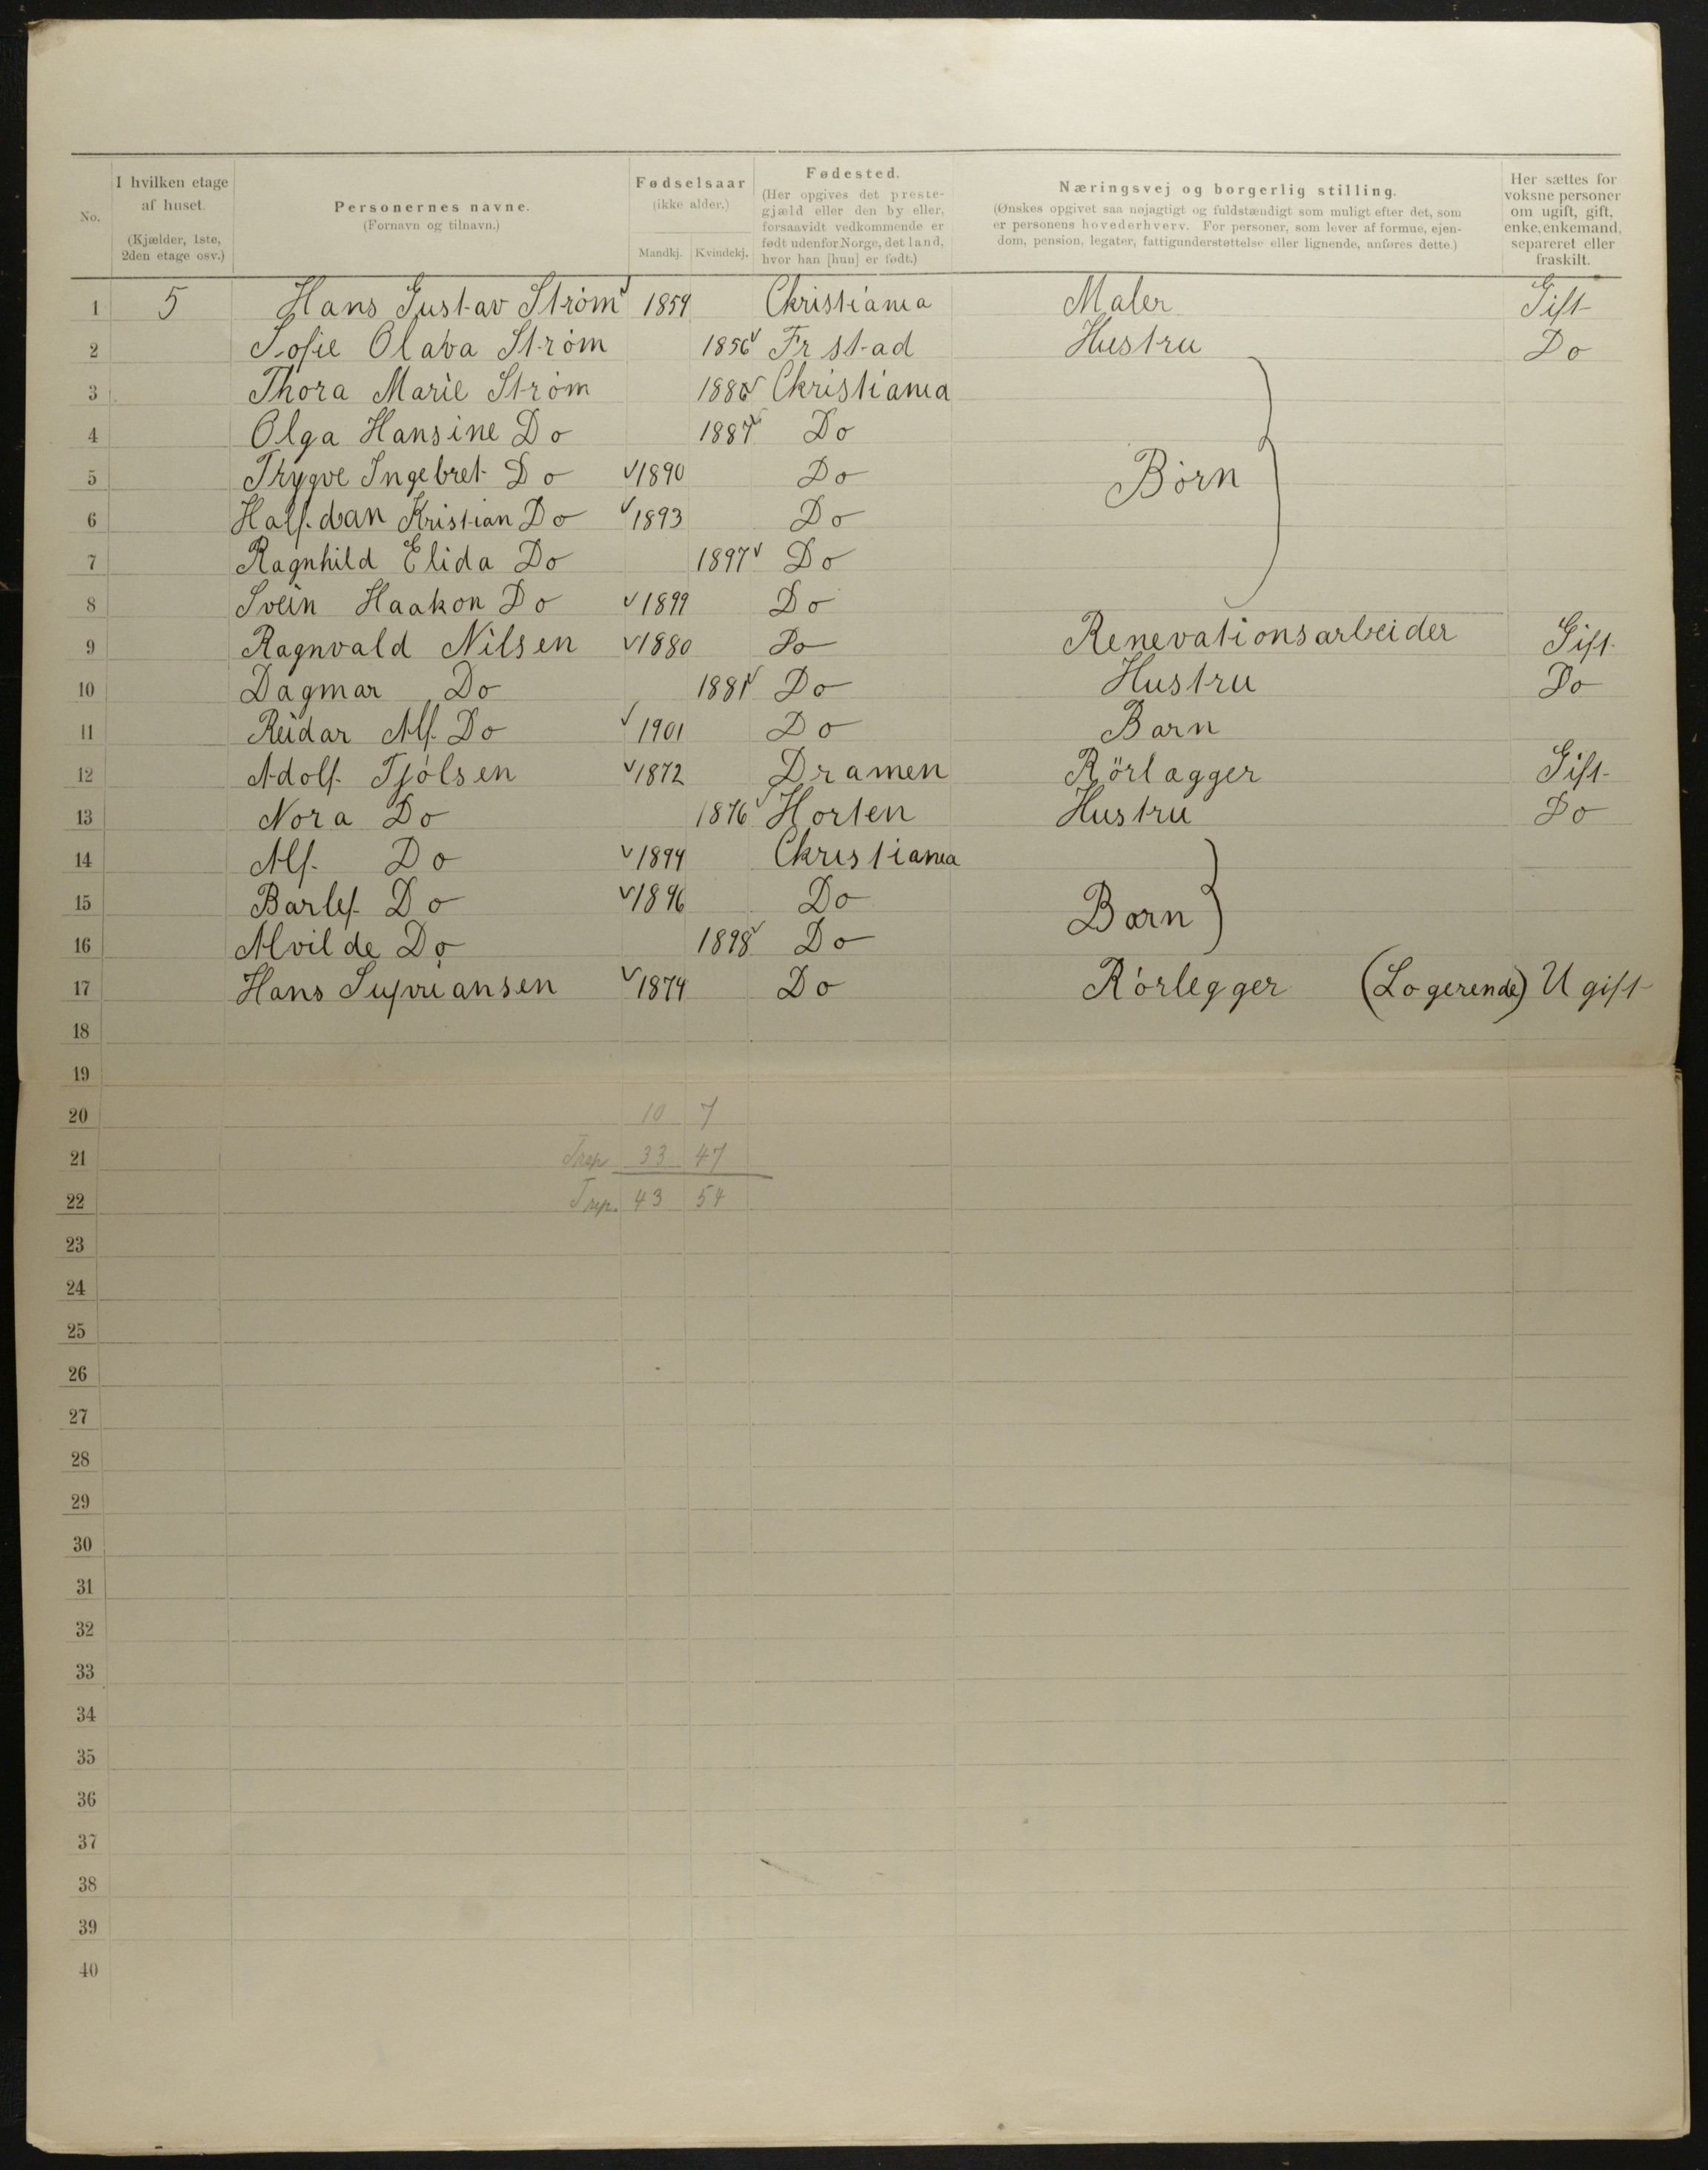 No.
I hvilken etage af huset.
(Kjælder, 1ste, 2den etage osv.)
Personernes navne.
(Fornavn og tilnavn.)
Fødselsaar
(ikke alder.)
Mandkj. Kvindekj.
Fødested.
(Her opgives det preste-
gjæld eller den by eller,
forsaavidt vedkommende er
født udenfor Norge, det land,
hvor han [hun] er født.)
Næringsvej og borgerlig stilling.
(Ønskes opgivet saa nøjagtigt og fuldstændigt som muligt efter det, som
er personens hovederhverv. For personer, som lever af formue, ejen-
dom, pension, legater, fattigunderstøttelse eller lignende, anføres dette.)
Her sættes for
voksne personer
om ugift, gift,
enke, enkemand,
separeret eller
fraskilt.
1 5 Hans Gustav Strøm 1859 Christiania Maler Gift
2 Sofie Olava Strøm 1856 Fr stad Hustru Do
3 Thora Marie Strøm 1886 Christiania
4 Olga Hansine Do 1887 Do
5 Trygve Ingebret Do 1890 Do Börn
6 Halfdan Kristian Do 1893 Do
7 Ragnhild Elida Do 1897 Do
8 Svein Haakon Do 1899 Do
9 Ragnvald Nilsen 1880 Do Renevationsarbeider Gift
10 Dagmar Do 1881 Do Hustru Do
11 Reidar Alf Do 1901 Do Barn
12 Adolf Tjölsen 1872 Dramen Rörlagger Gift
13 Nora Do 1876 Horten Hustru Do
14 Alf Do 1894 Christiania
15 Barlef Do 1896 Do Barn
16 Alvilde Do 1898 Do
17 Hans 1874 Do Rörlegger (Logerende) Ugift
18
19
20 10 7
21 33 47
22 43 54
23
24
25
26
27
28
29
30
31
32
33
34
35
36
37
38
39
40